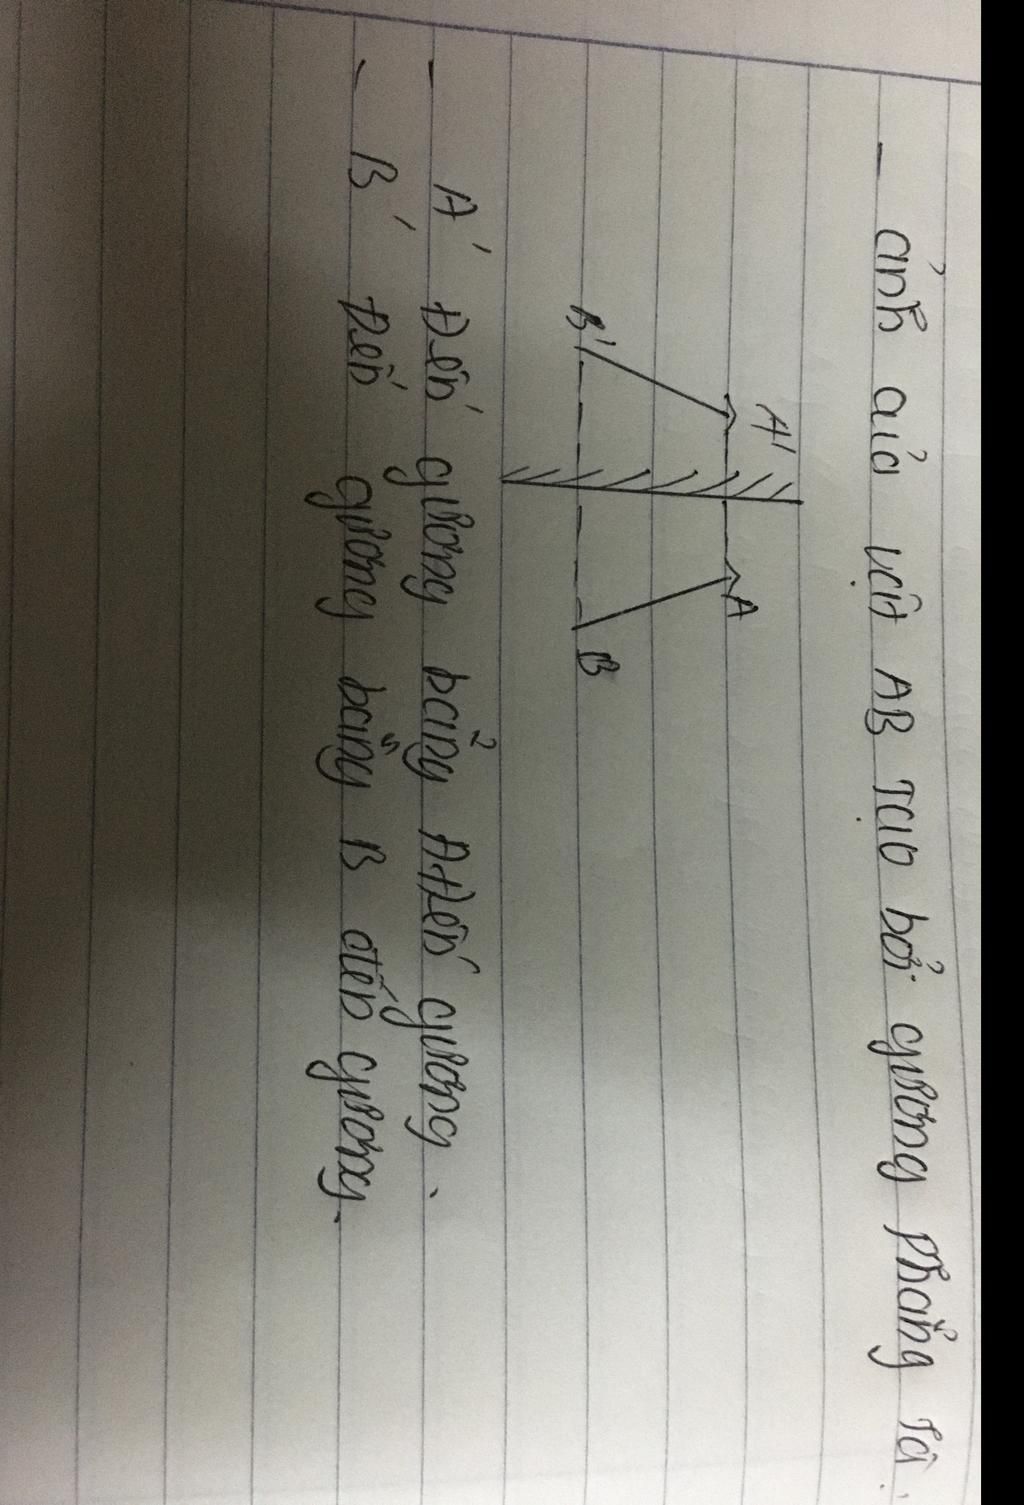 - ảnh ảủa vật AB Tạo bởi gương phẳng Tả
A'
A
B'
B
- A' Đến gương bẳng A Đến gương.
- B' Đến gương bằng B đến gương.